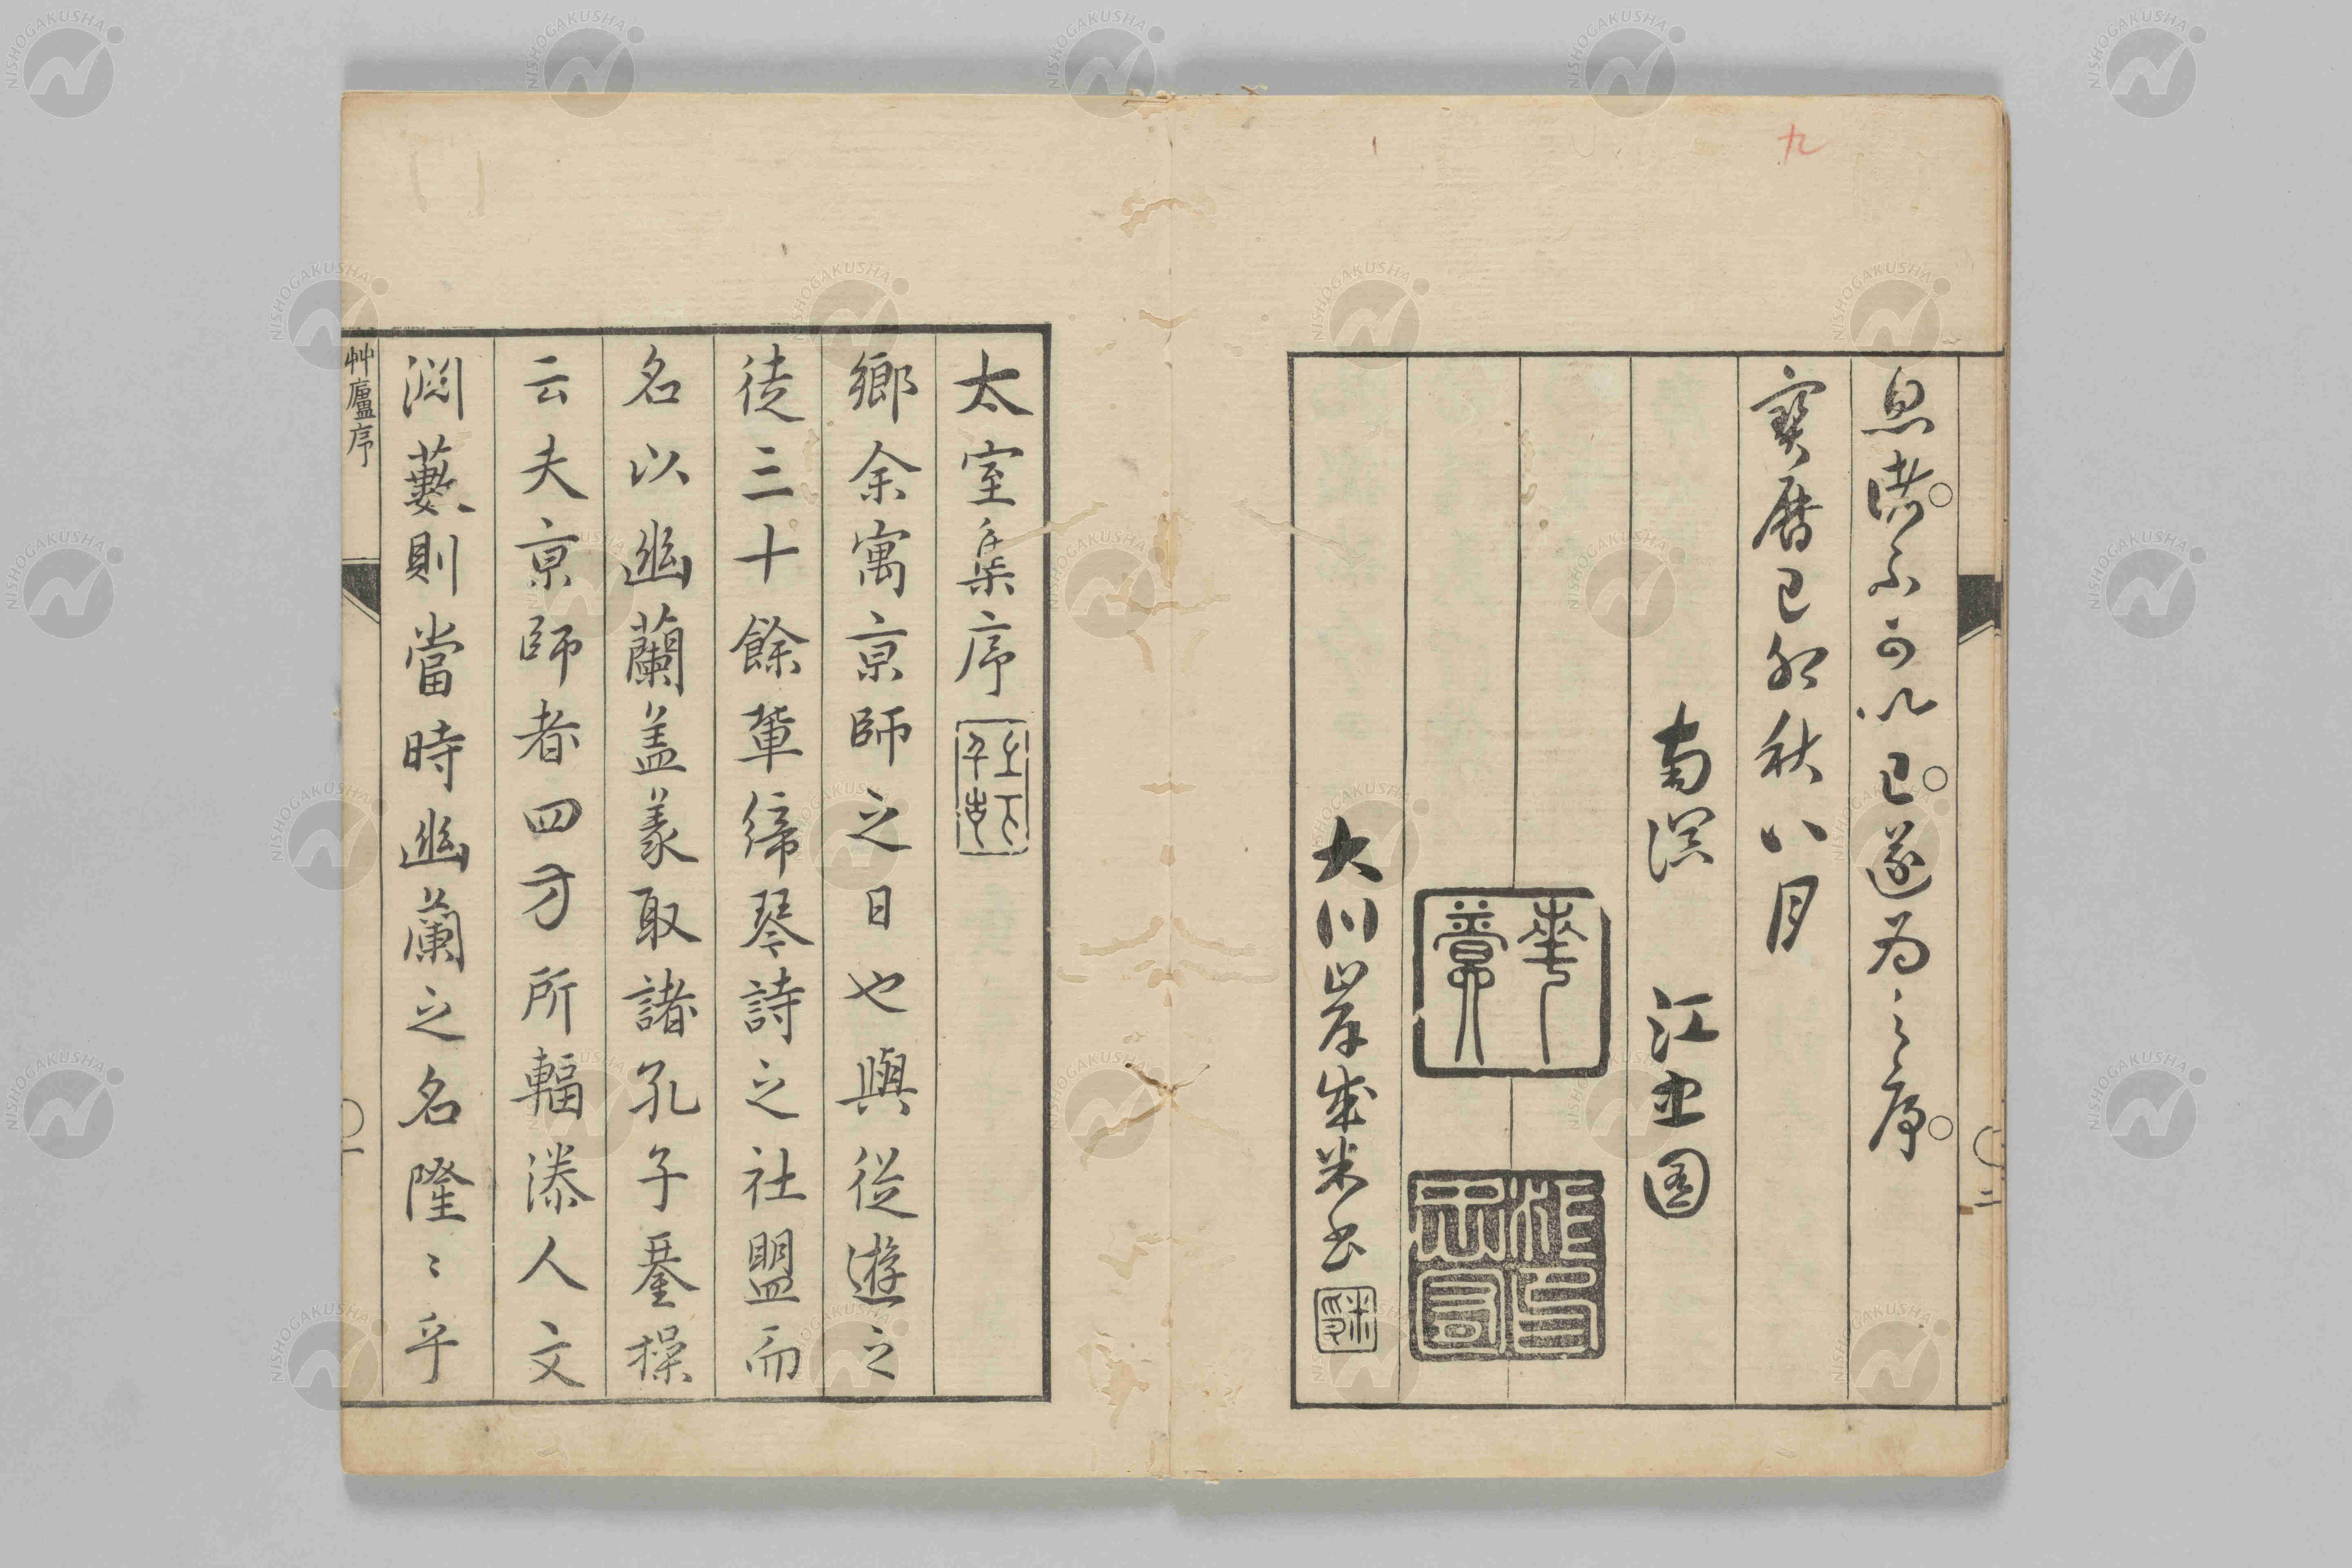 九
寶曆己卯秋八月
南溟 江忠囿
大川岸成米書
二
太室集序
鄉余寓亰師之日也與從遊之
徒三十餘輩締琴詩之社盟而
名以幽蘭盖義取諸孔子琴操
云夫亰師者四方所輻湊人文
淵藪則當時幽蘭之名隆〻乎
艸廬序
一
NISHOGAKUSHA